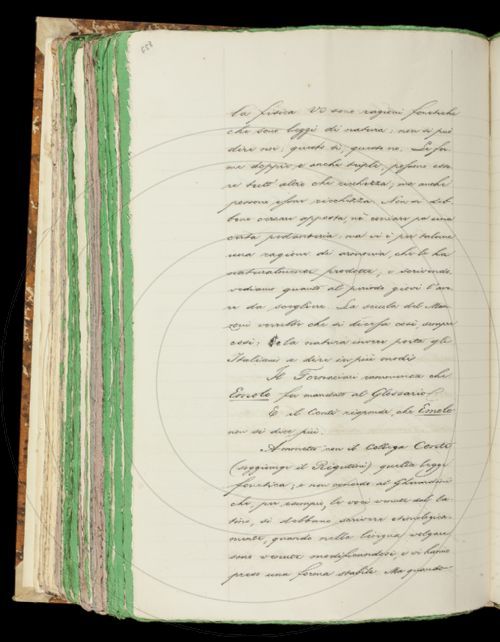 la fisica vi sono ragioni fonetiche
che sono leggi di natura; non si può
dire noi: questo sì, questo no. Le for
me doppie e anche triple, possono esse
re tutt'altro che ricchezza; ma anche
possono esser ricchezza. Non si deb
bono cercare apposta, nè cansare per una
certa pedanteria; ma vi è per talune
una ragione di armonia, che le ha
naturalmente prodotte; e scrivendo
vediamo quanto al periodo giovi l'ave
re da scegliere. La scuola del Man
zoni vorrebbe che si dicesse così, sempre
così; e la natura invece porta gli
Italiani a dire in più modi
Il Fornaciari rammenta che
Emolo fu mandato al Glossario
E il Conti risponde, che Emolo
non si dice più.
Ammetto con il Collega Conti
(soggiunge il Rigutini) questa legge
fonetica; e non concedo al Gherardini
che, per esempio, le voci venute dal la
tino, si debbano scrivere etimologica
mente, quando nella lingua volgare
sono venute modificandosi, e vi hanno
preso una forma stabile. Ma quando